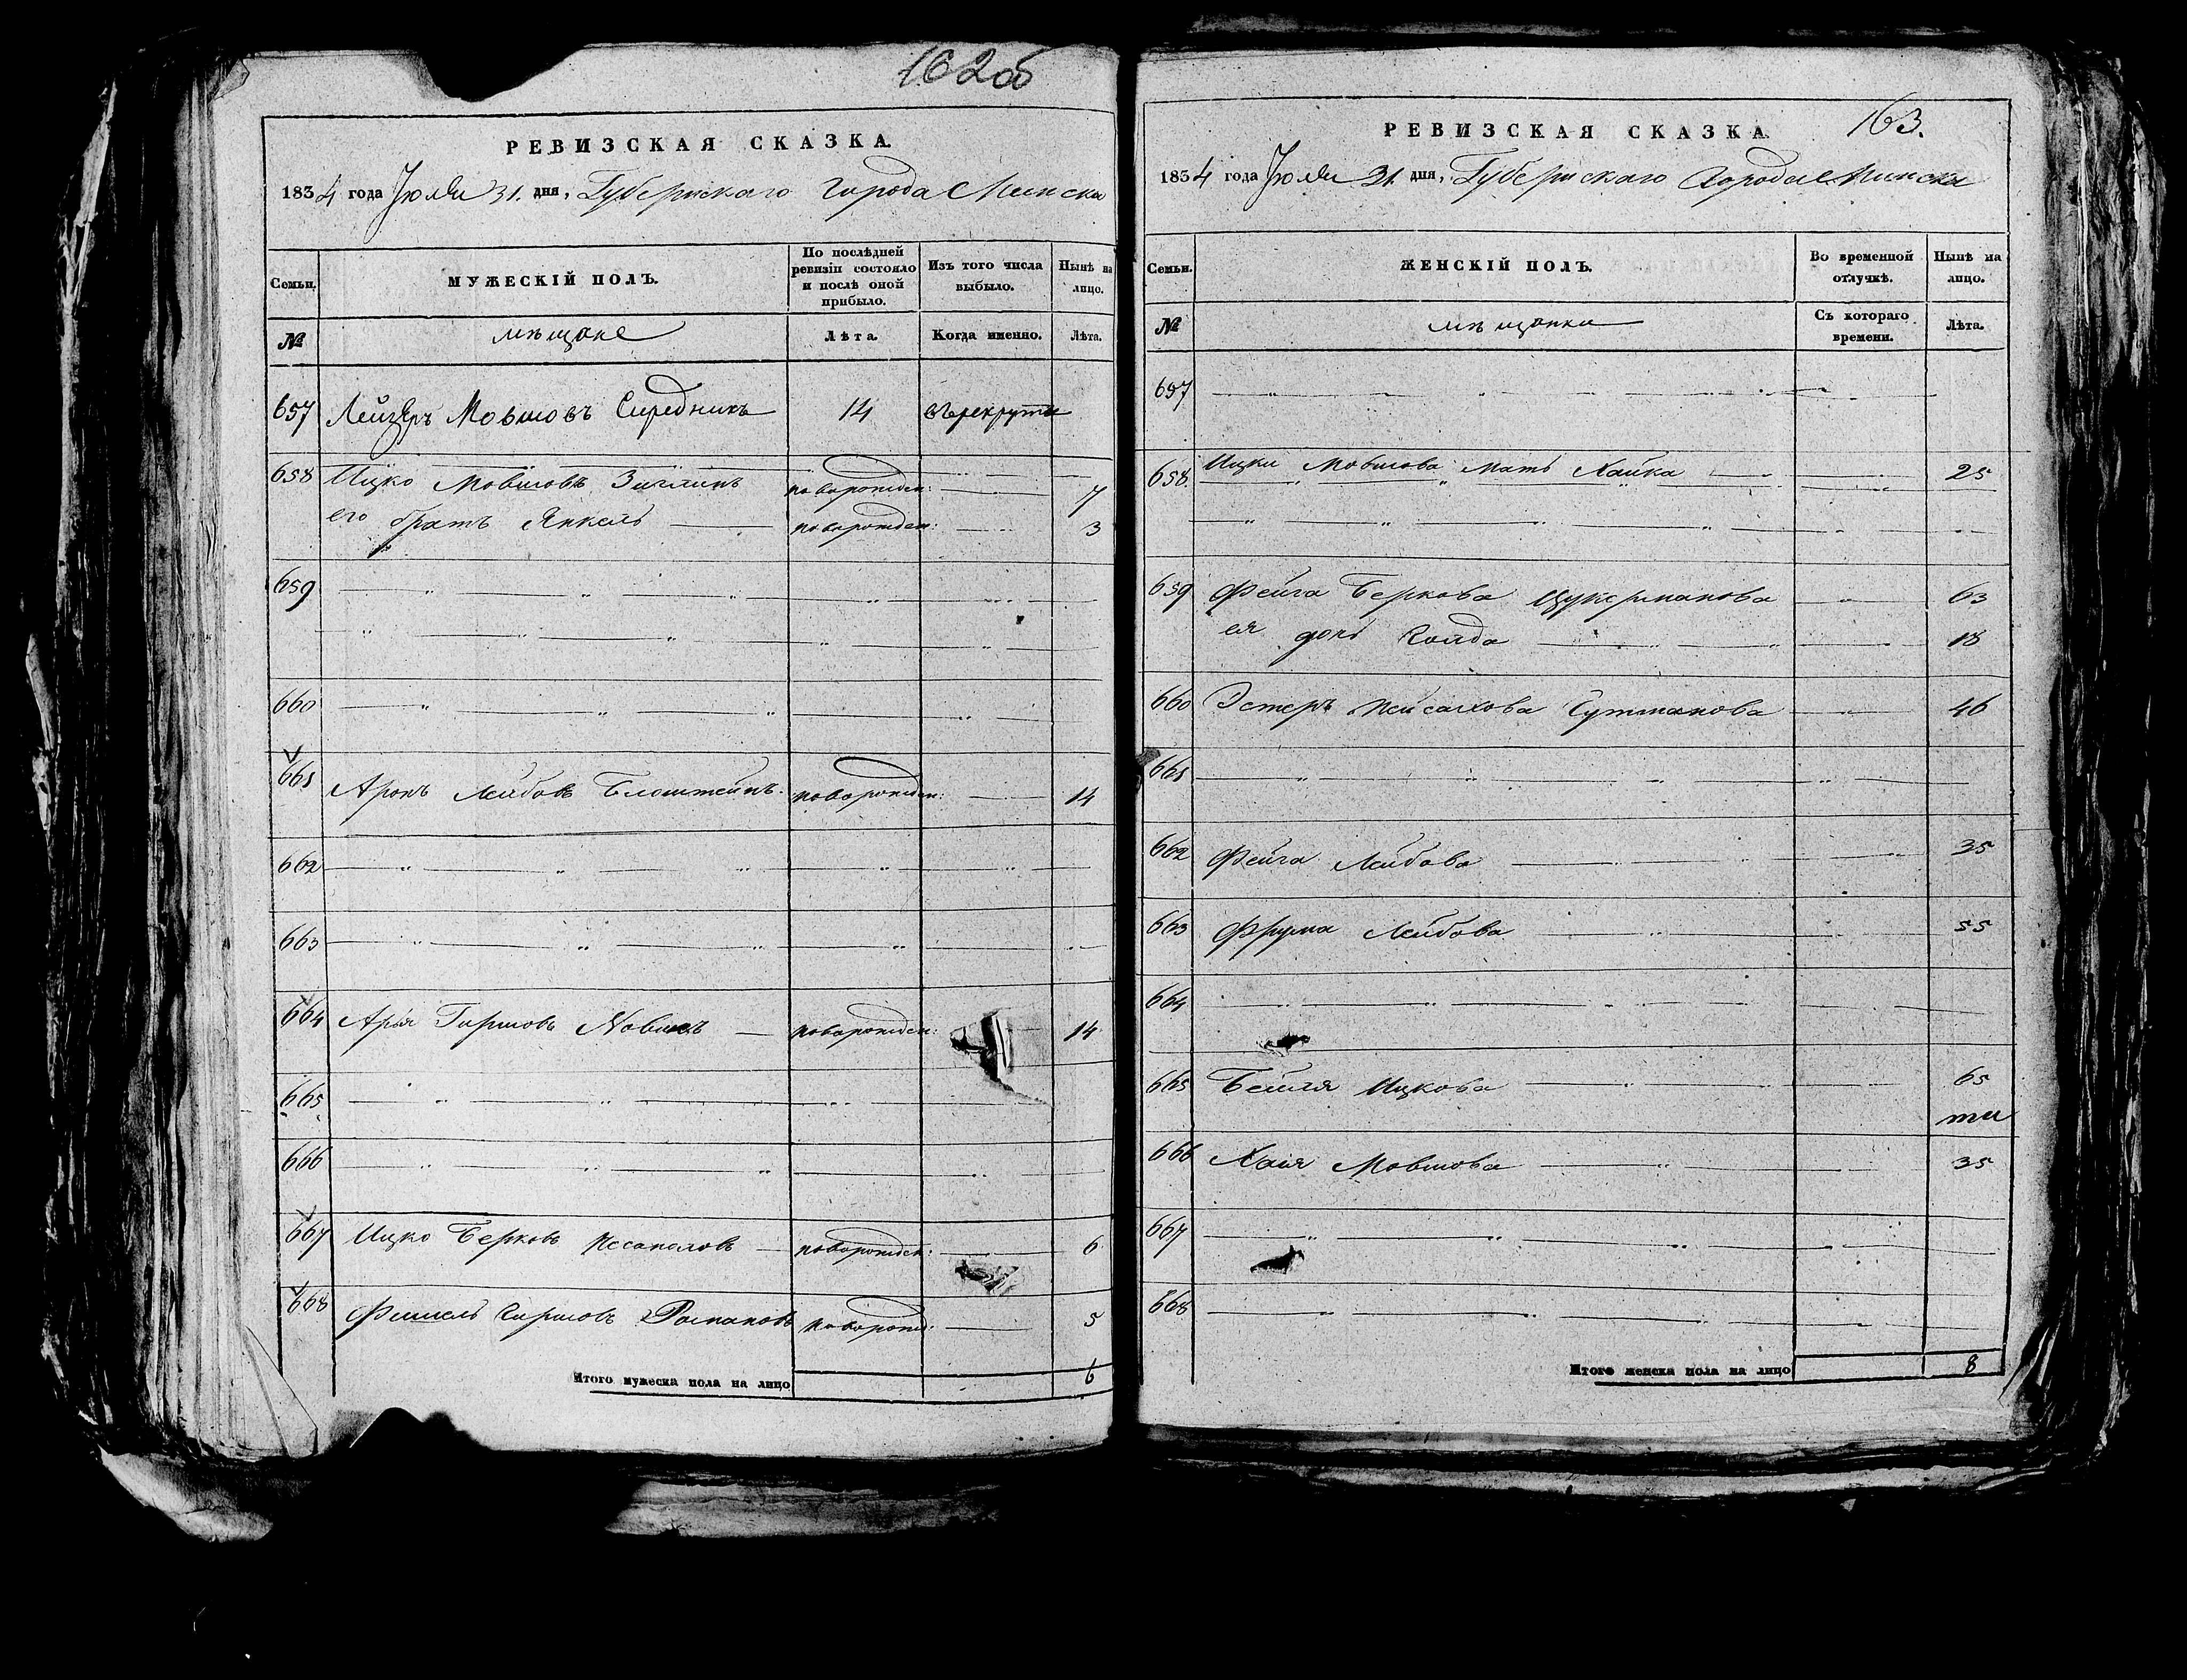 162об
РЕВИЗСКАЯ СКАЗКА.
1834 года Июля 31. дня, Губернскаго города Минска
Семьи.
МУЖЕСКІЙ ПОЛЪ.
По послѣдней ревизіи состояло и послѣ оной прибыло.
Изъ того числа выбыло.
Нынѣ на лицо.
№
мѣщане
Лѣта.
Когда именно.
Лѣта.
657 Лейзеръ Мовшовъ Середникъ 14 въ рекруты
658 Ицко Мовшовъ новорожден: 7
его братъ Янкель новорожден: 3
659
660
661 Аронъ Лейбовъ Блоштейнъ новорожден: 14
662
663
664 Арья Гиршовъ новорожден: 14
665
666
667 Ицко Берковъ новорожден: 6
668 Фишель Гиршовъ новорожд: 5
Итого мужеска пола на лицо 6
163.
РЕВИЗСКАЯ СКАЗКА
1834 года Июля 31. дня, Губернскаго Города Минска
Семьи.
ЖЕНСКІЙ ПОЛЪ.
Во временной отлучкѣ.
Нынѣ на лицо.
№
мѣщанки
Съ котораго времени.
Лѣта.
657
658 Ицки Мовшова мать Хайка 25
659 Фейга Беркова Цукерманова 63
ея дочь 18
660 Эстеръ Пейсахова Гутманова 46
661
662 Фейга Лейбова 35
663 Фрума Лейбова 55
664
665 Бейля Ицкова 65
ти
666 Хая Мовшова 35
667
668
Итого женска пола на лицо 8